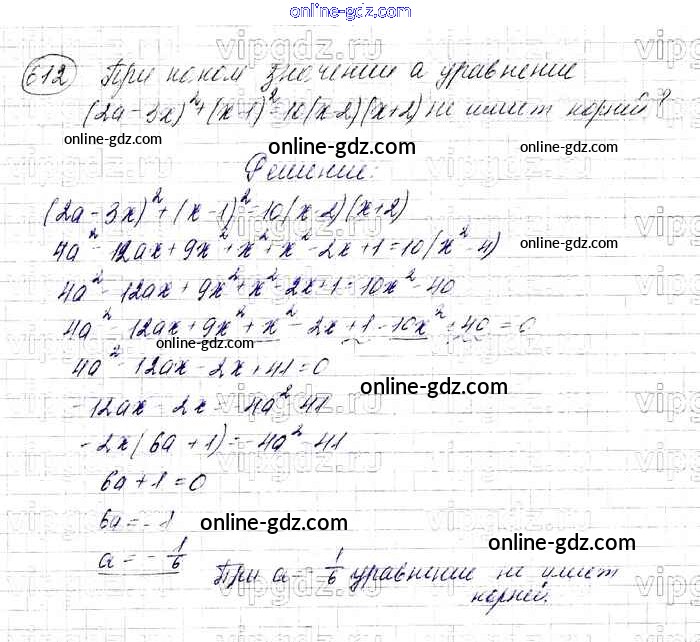 online-gdz.com
612 При каком значении а уравнение
(2a-3x)²+(x-1)²=10(x-2)(x+2) не имеет корней?
online-gdz.com online-gdz.com online-gdz.com
Решение:
(2a-3x)²+(x-1)²=10(x-2)(x+2)
4a²-12ax+9x²+x²+x²-2x+1=10(x²-4)
online-gdz.com
4a²-12ax+9x²+x²-2x+1=10x²-40
4a²-12ax+9x²+x²-2x+1-10x²+40=0
online-gdz.com
4a²-12ax-2x+41=0
online-gdz.com
-12ax-2x=-4a²-41
-2x(6a+1)=-4a²-41
6a+1=0
6a=-1
online-gdz.com
a=-1/6
online-gdz.com
При a=-1/6 уравнение не имеет
корней.
online-gdz.com